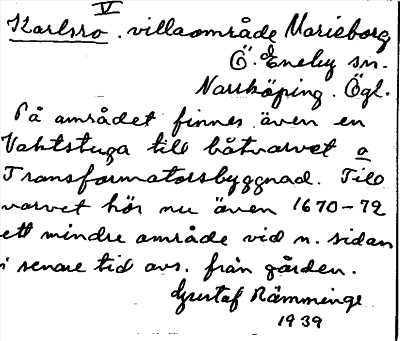 V
Karlsro . villaområde Marieborg
Ö. Eneby sn.
Norrköping. Ögl.
På området finnes även en
Vaktstuga till båtvarvet o
Transformatorsbyggnad. Till
varvet hör nu även 1670-72
ett mindre område vid n. sidan
i senare tid avs. från gården.
Gustaf Rämminge
1939